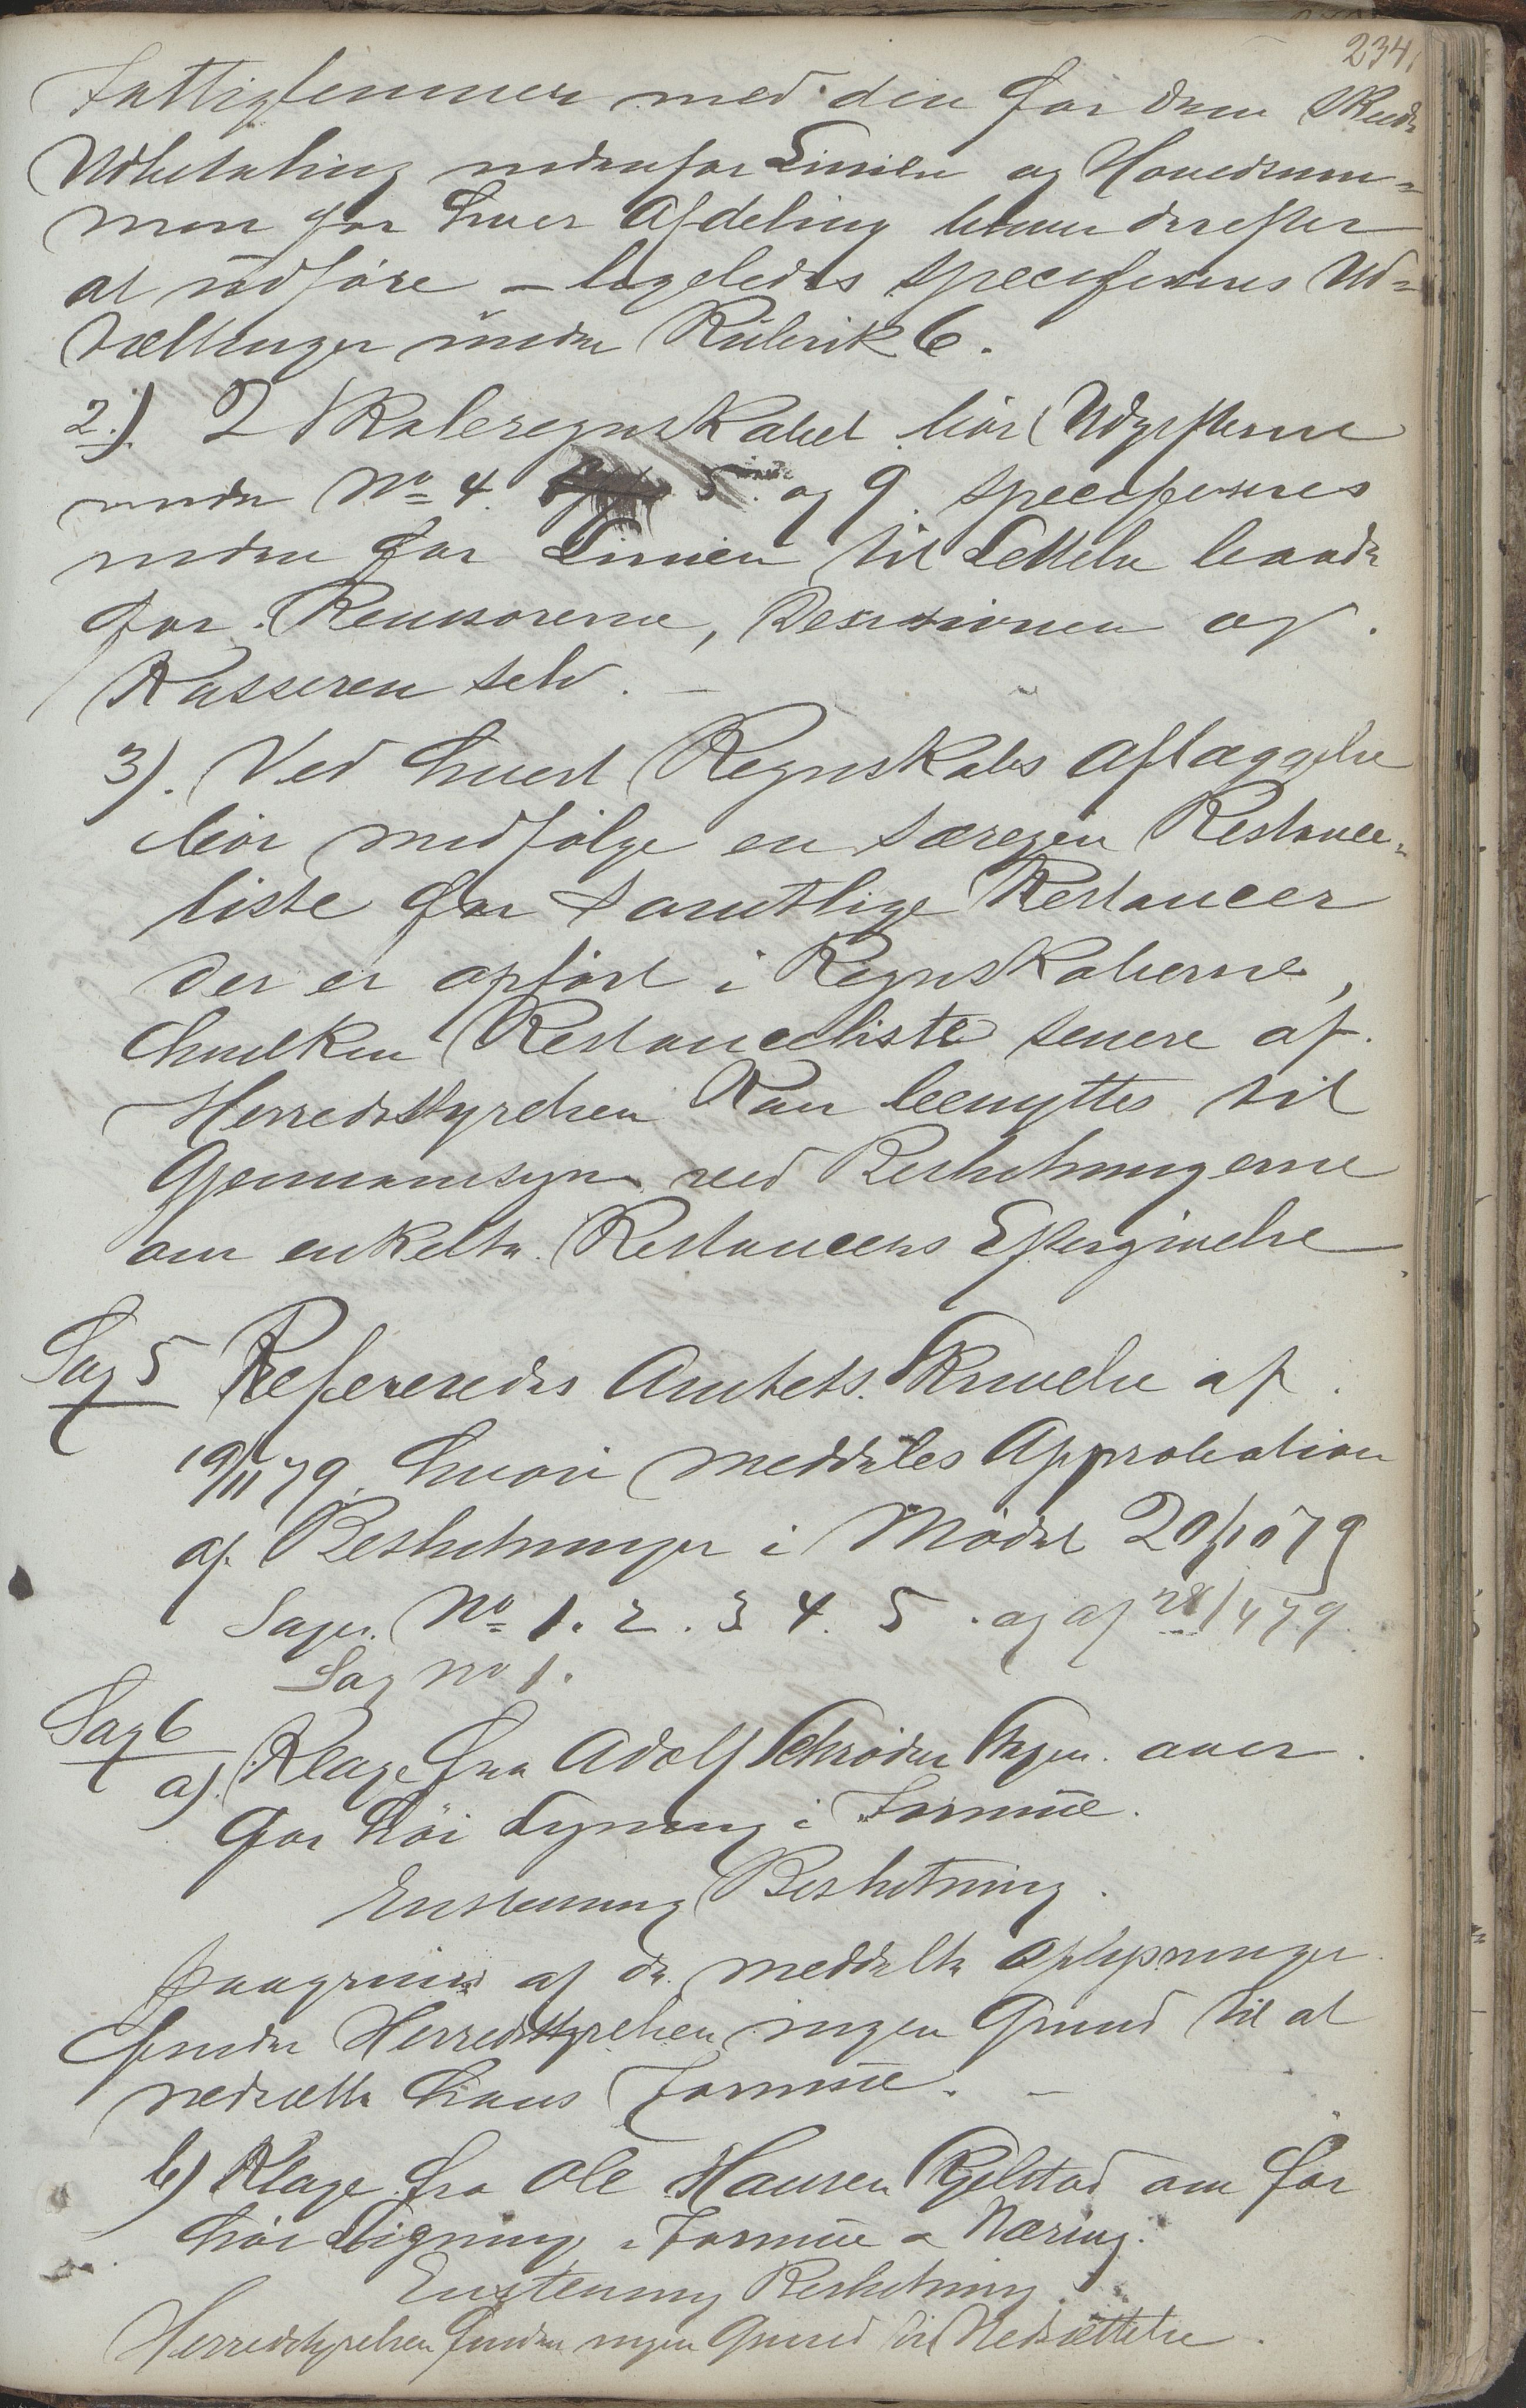 234.
Fattiglemmer med den for dem skede
Udbetaling nedenfor Linien og Hovedsum-
men for hver Afdeling bliver derefter
at udføre - ligeledes specificeres Ud-
tællinger under Rubrik 6.
2.) I Skoleregnskabet bør Udgifterne
under No 4. 5. og 9. specificeres
neden for Linien til Lettelse baade
for Revisorerne, Desisionen og
Kasseren selv. -
3). Ved hvert Regnskabs aflæggelse
bør medfølge en særegen Restance-
liste for samtlige Restancer
der er opført i Regnskaberne,
hvilken Restanceliste senere af
Herredsstyrelsen kan benyttes til
Gjennemsyn ved Beslutningerne
om enkelte Restancers Eftergivelse
Sag 5 Refereredes Amtets Skrivelse af
19/11 79. hvori meddeles Approbation
af Beslutninger i Mødet 20/10 79
Sager No 1. 2. 3 4. 5. og af 28/4 79.
Sag No 1.
Sag 6
a). Klage fra Adolf Schrøder over
for høi Ligning i Formue.
Enstemmig Beslutning.
Paagrund af de meddelte Oplysninger
finder Herredsstyrelsen ingen Grund til at
nedsætte hans Formue. -
b) Klage fra Ole Hansen Gjelstad om for
høi Ligning i Formue & Næring.
Enstemmig Beslutning
Herredsstyrelsen finder ingen Grund til Nedsættelse.